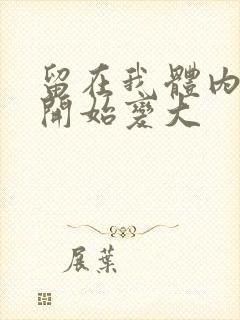 留在我體內
開始變大
展葉